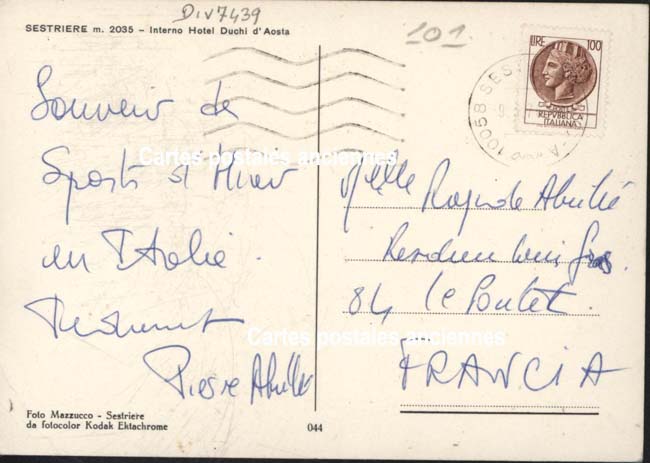 Div7439
101
SESTRIERE m. 2035 – Interno Hotel Duchi d'Aosta
LIRE 100
REPVBBLICA
ITALIANA
10058 SES
Souvenir de
Sports d'Hiver
en Italie.
Pierre
Cartes postales anciennes
Melle
Résidence Louis Gros.
84 le Pontet.
FRANCIA
Cartes postales anciennes
Foto Mazzucco - Sestriere
da fotocolor Kodak Ektachrome
044